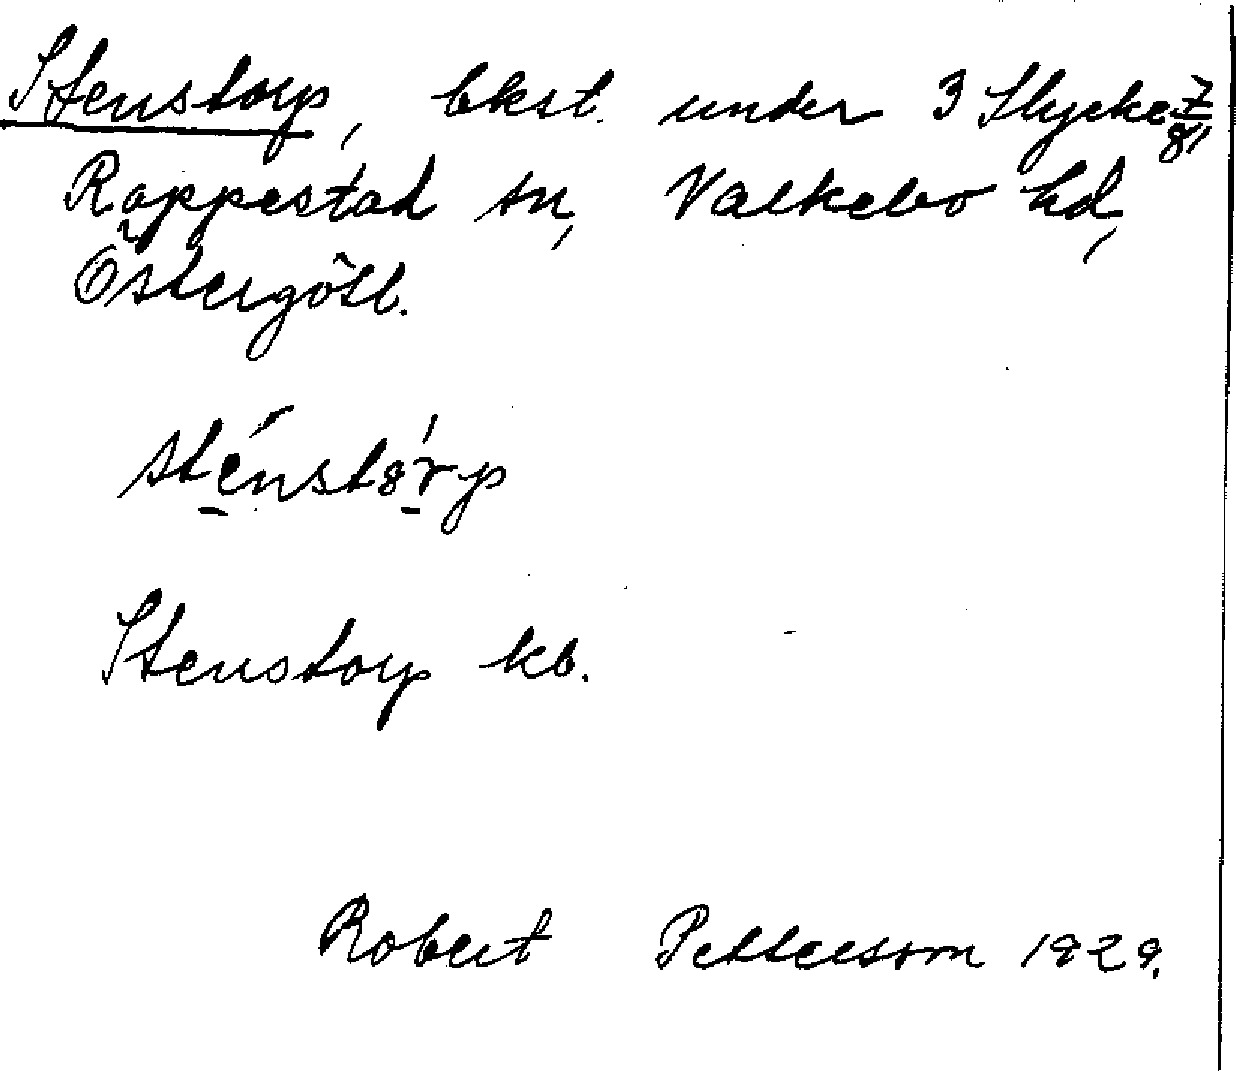 Stenstorp, bkst. under 3 Stycke 7/81
Rappestad sn, Valkebo hd,
Östergötl.
sténstårp
Stenstorp kb.
Robert Pettersson 1929.